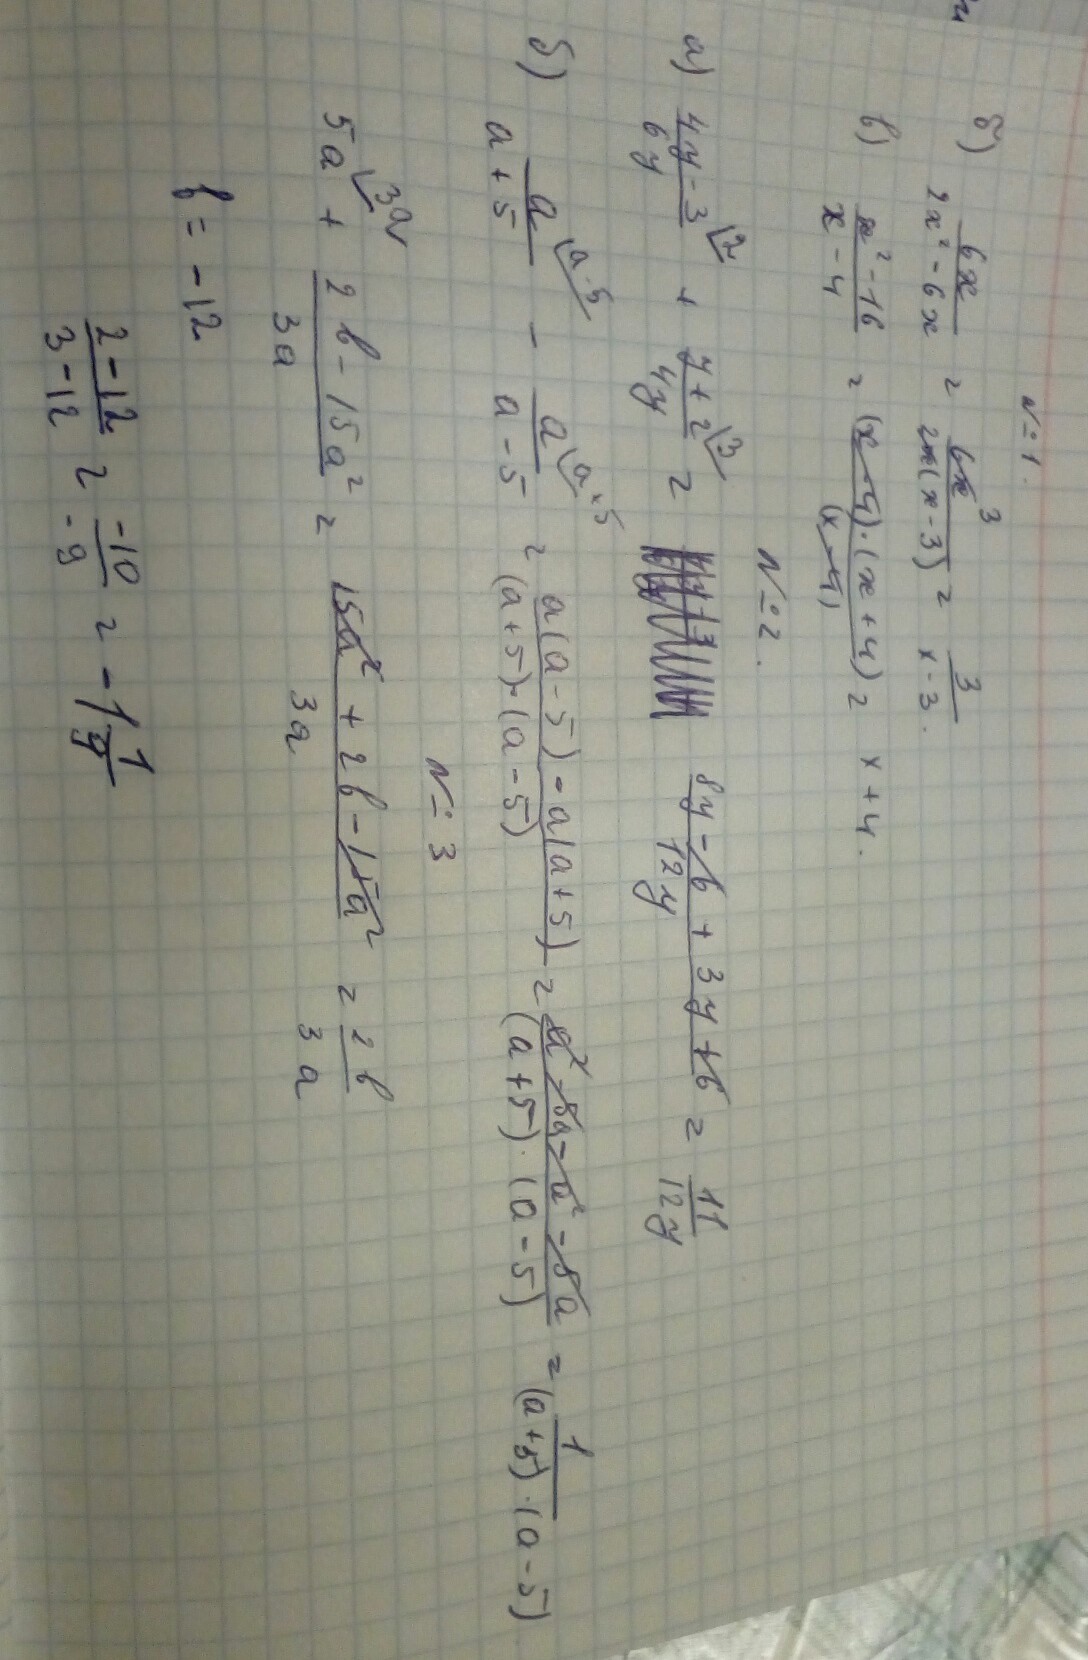 №1.
б) 6x / 2x² - 6x = 6x 3 / 2x(x - 3) = 3 / x - 3.
в) x² - 16 / x - 4 = (x - 4)·(x + 4) / (x - 4) = x + 4.
№2.
а) 4y - 3 / 6y + y + 2 / 4y = 8y - 6 + 3y + 6 / 12y = 11 / 12y
б) a / a + 5 - a / a - 5 = a(a - 5) - a(a + 5) / (a + 5)·(a - 5) = a² - 5a - a² - 5a / (a + 5)·(a - 5) = 1 / (a + 5)·(a - 5)
№3
5a + 2b - 15a² / 3a = 15a² + 2b - 15a² / 3a = 2b / 3a
b = -12
2 - 12 / 3 - 12 = -10 / -9 = -1 1/9